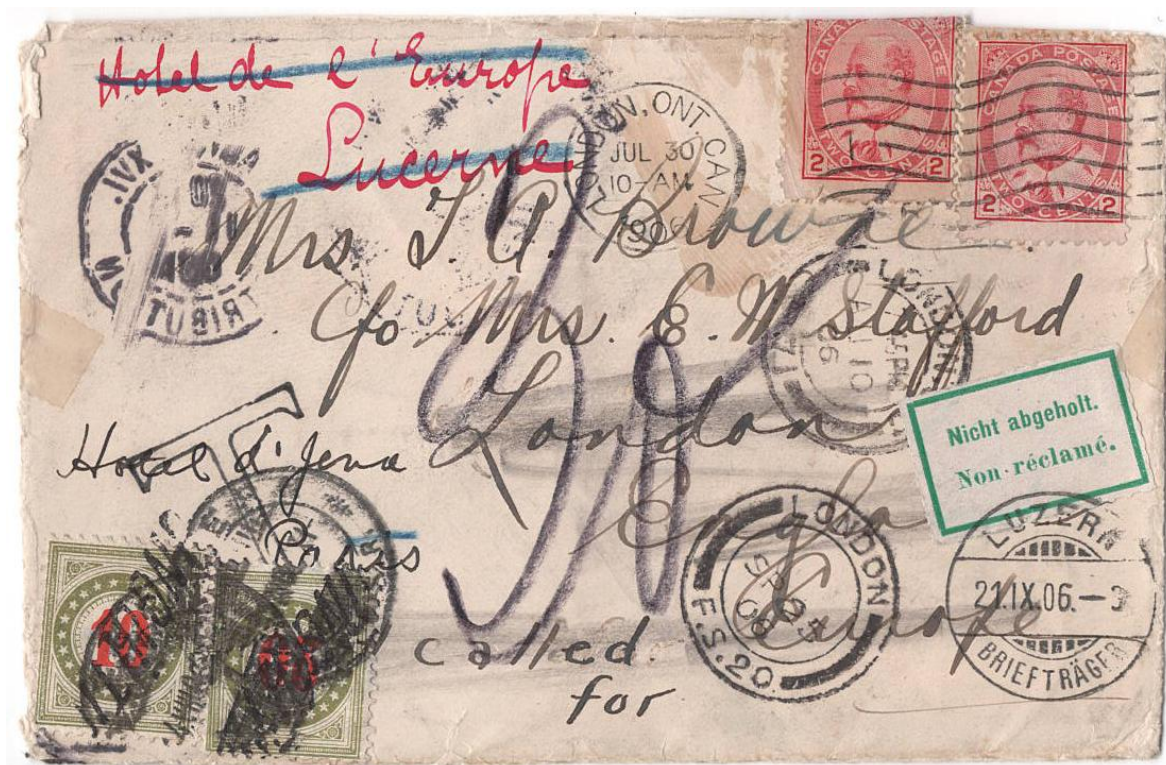 Hotel de l'Europe
Lucerne
LONDON, ONT CAN
JUL 30
10-AM
190
CANADA POSTAGE
2 TWO CENTS 2
CANADA POSTAGE
2 TWO CENTS 2
Mrs J. A. Browne
c/o Mrs. E. W. Stafford
London
England
Europe
LONDON
10
06
Nicht abgeholt.
Non réclamé.
Hotel d'Jena
Paris
T
30
LONDON
SP 25
06
F.S. 20
LUZERN
21.IX.06.–3
BRIEFTRÄGER
10
called
for